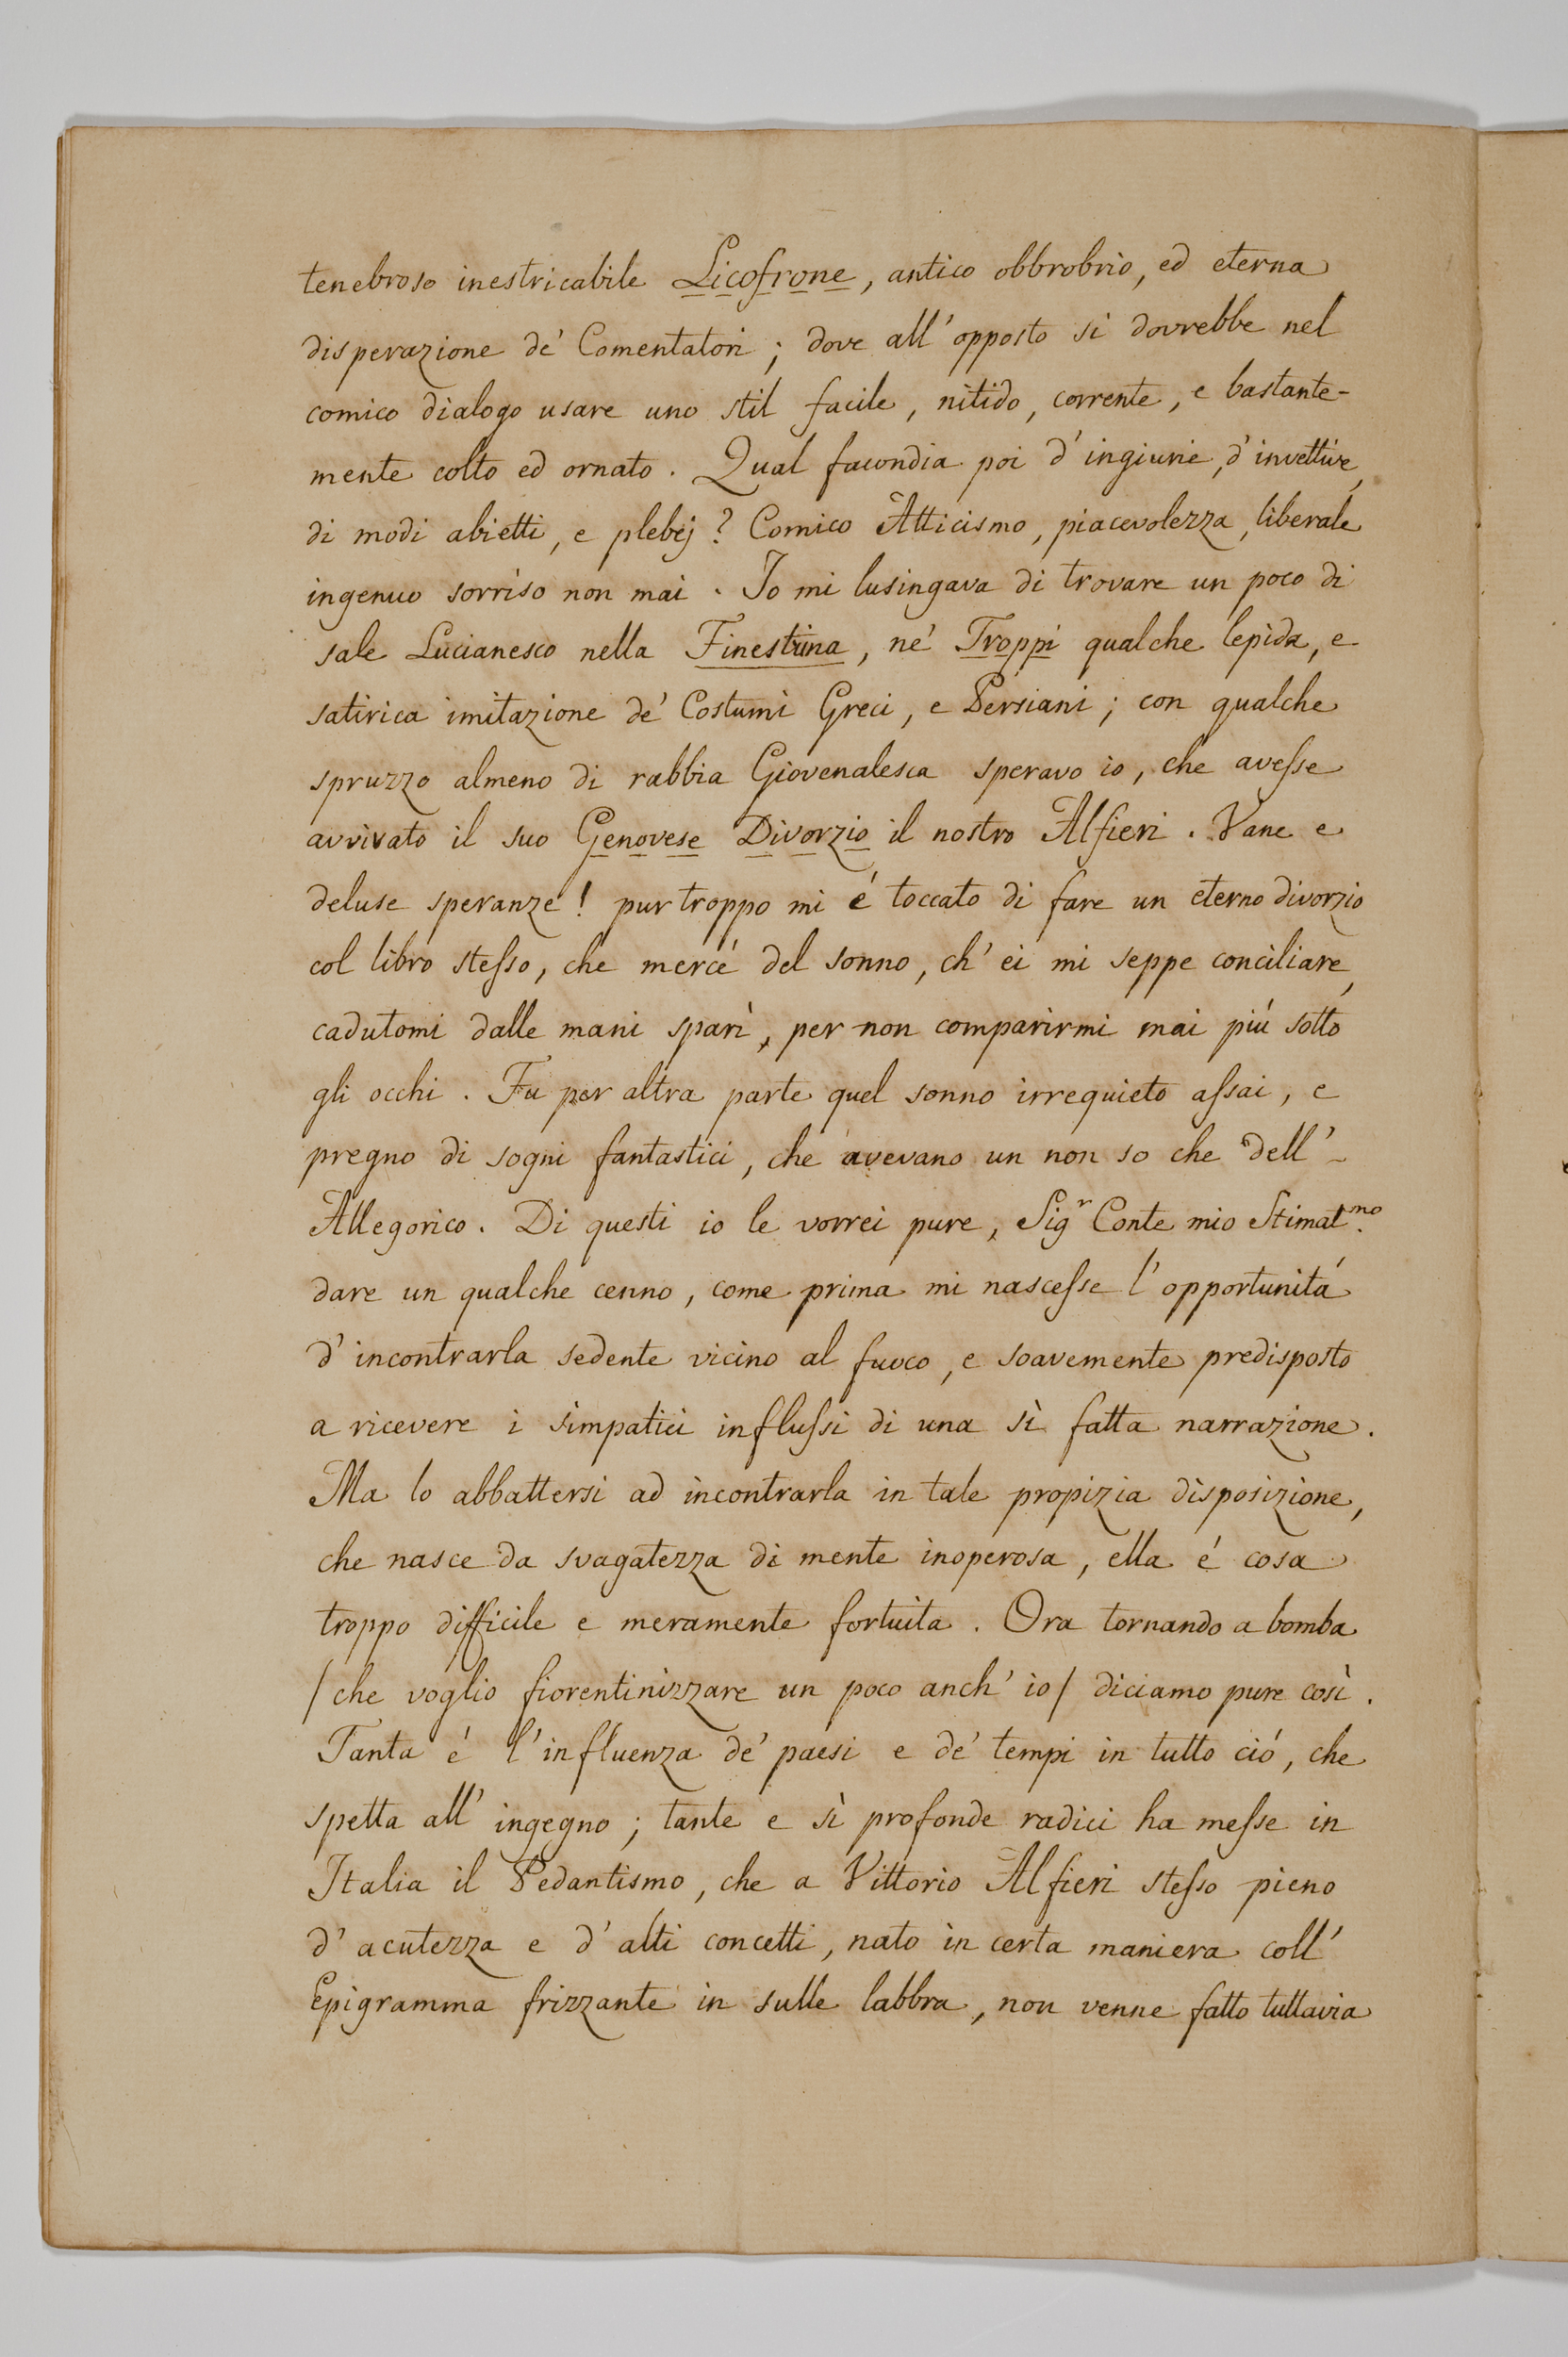 tenebroso inestricabile Licofrone, antico obbrobrio, ed eterna
disperazione de' Comentatori; dove all'opposto si dovrebbe nel
comico dialogo usare uno stil facile, nitido, corrente, e bastante-
mente colto ed ornato. Qual facondia poi d'ingiurie, d'invettive,
di modi abietti, e plebej? Comico Atticismo, piacevolezza, liberale
ingenuo sorriso non mai. Io mi lusingava di trovare un poco di
sale Lucianesco nella Finestrina, ne' Troppi qualche lepida, e
satirica imitazione de' Costumi Greci, e Persiani; con qualche
spruzzo almeno di rabbia Giovenalesca speravo io, che avesse
avvivato il suo Genovese Divorzio il nostro Alfieri. Vane e
deluse speranze! pur troppo mi é toccato di fare un eterno divorzio
col libro stesso, che mercé del sonno, ch'ei mi seppe conciliare,
cadutomi dalle mani sparì, per non comparirmi mai piú sotto
gli occhi. Fu per altra parte quel sonno irrequieto assai, e
pregno di sogni fantastici, che avevano un non so che dell'-
Allegorico. Di questi io le vorrei pure, Sigʳ Conte mio Stimatᵐᵒ.
dare un qualche cenno, come prima mi nascesse l'opportunitá
d'incontrarla sedente vicino al fuoco, e soavemente predisposto
a ricevere i simpatici influssi di una sì fatta narrazione.
Ma lo abbattersi ad incontrarla in tale propizia disposizione,
che nasce da svagatezza di mente inoperosa, ella é cosa
troppo difficile e meramente fortuita. Ora tornando a bomba
/che voglio fiorentinizzare un poco anch'io/ diciamo pure così.
Tanta é l'influenza de' paesi e de' tempi in tutto ció, che
spetta all'ingegno; tante e sì profonde radici ha messe in
Italia il Pedantismo, che a Vittorio Alfieri stesso pieno
d'acutezza e d'alti concetti, nato in certa maniera coll'
Epigramma frizzante in sulle labbra, non venne fatto tuttavia